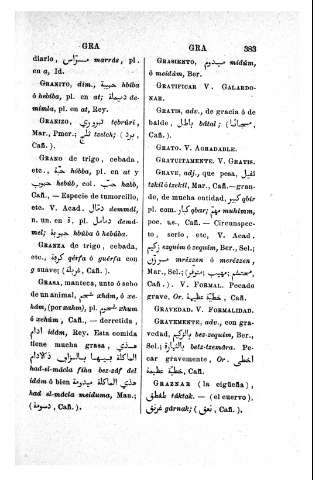 GRA
GRA
383
diario, مرّاس marrás, pl.
en a, Id.
GRANITO, dim., حبيبة hbiba
ó hebiba, pl. en at; دميملة de-
mimla, pl. en at, Rey.
GRANIZO, تبروري tebrúri,
Mar., Pmer.; ثلج tselch; (برد,
Cañ.).
GRANO de trigo, cebada,
etc., حبّة hóbba, pl. en at y
حبوب hebúb, col. حبّ habb,
Cañ., — Especie de tumorcillo,
etc. V. Acad. دمّال demmál,
n. un. en ŝ. pl. دمامل demá-
mel; حبوبة hbúba ó hebúba.
GRANZA de trigo, cebada,
etc., كرفة qérfa ó guérfa con
g suave; (غربلة, Cañ.).
GRASA, manteca, unto ó sebo
de un animal, شحم xhám, ó xe-
hám, (por xahm), pl. شحوم xhum
ó xehúm, Cañ., — derretida,
ادام idám, Rey. Esta comida
tiene mucha grasa, هذي
الماكلة فيها بالزّاف ذالادام
had-si-mácla fiha bez-záf del
idám ó bien هذي الماكلة ميدومة
had sl-mácla meiduma, Man.;
(دسومة, Cañ.).
GRASIENTO, ميدوم midúm,
ó meidúm, Ber.
GRATIFICAR V. GALARDO-
NAR.
GRATIS, adv., de gracia ó de
balde, باطل bátal; (مجانا,
Cañ.).
GRATO. V. AGRADABLE.
GRATUITAMENTE. V. GRATIS.
GRAVE, adj., que pesa, ثقيل
tzkil ó tzekil, Mar., Cañ.—gran-
de, de mucha entidad, كبير qbir
pl. com. كبار qbar; مهمّ muhimm,
poc. us., Cañ. — Circunspec-
to, serio, etc, V. Acad,
زكيم zequim ó zequím, Ber., Sel.;
مرزّن mrézzen ó merézzen,
Mar., Sel.; (محتشم; مهيب; متوقر,
Cañ.). V. FORMAL. Pecado
grave, Or. خطيّة عظيمة.
GRAVEDAD. V. FORMALIDAD.
GRAVEMENTE, adv., con gra-
vedad, بالزكيم bez-zequim, Ber.,
Sel.; بالتزمارة betz-tzemára. Pe-
car gravemente, Or. اخطى
خطيّة عظيمة, Cañ.
GRAZNAR (la cigüeña),
طقطق táktak. — (el cuervo),
غرنق gárnak; (نعق, Cañ.).